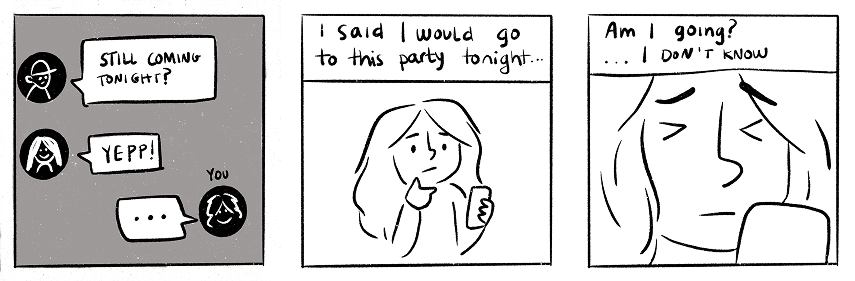 STILL COMING
TONIGHT?
YEPP!
YOU
...
I said I would go
to this party tonight...
Am I going?
... I DON'T KNOW